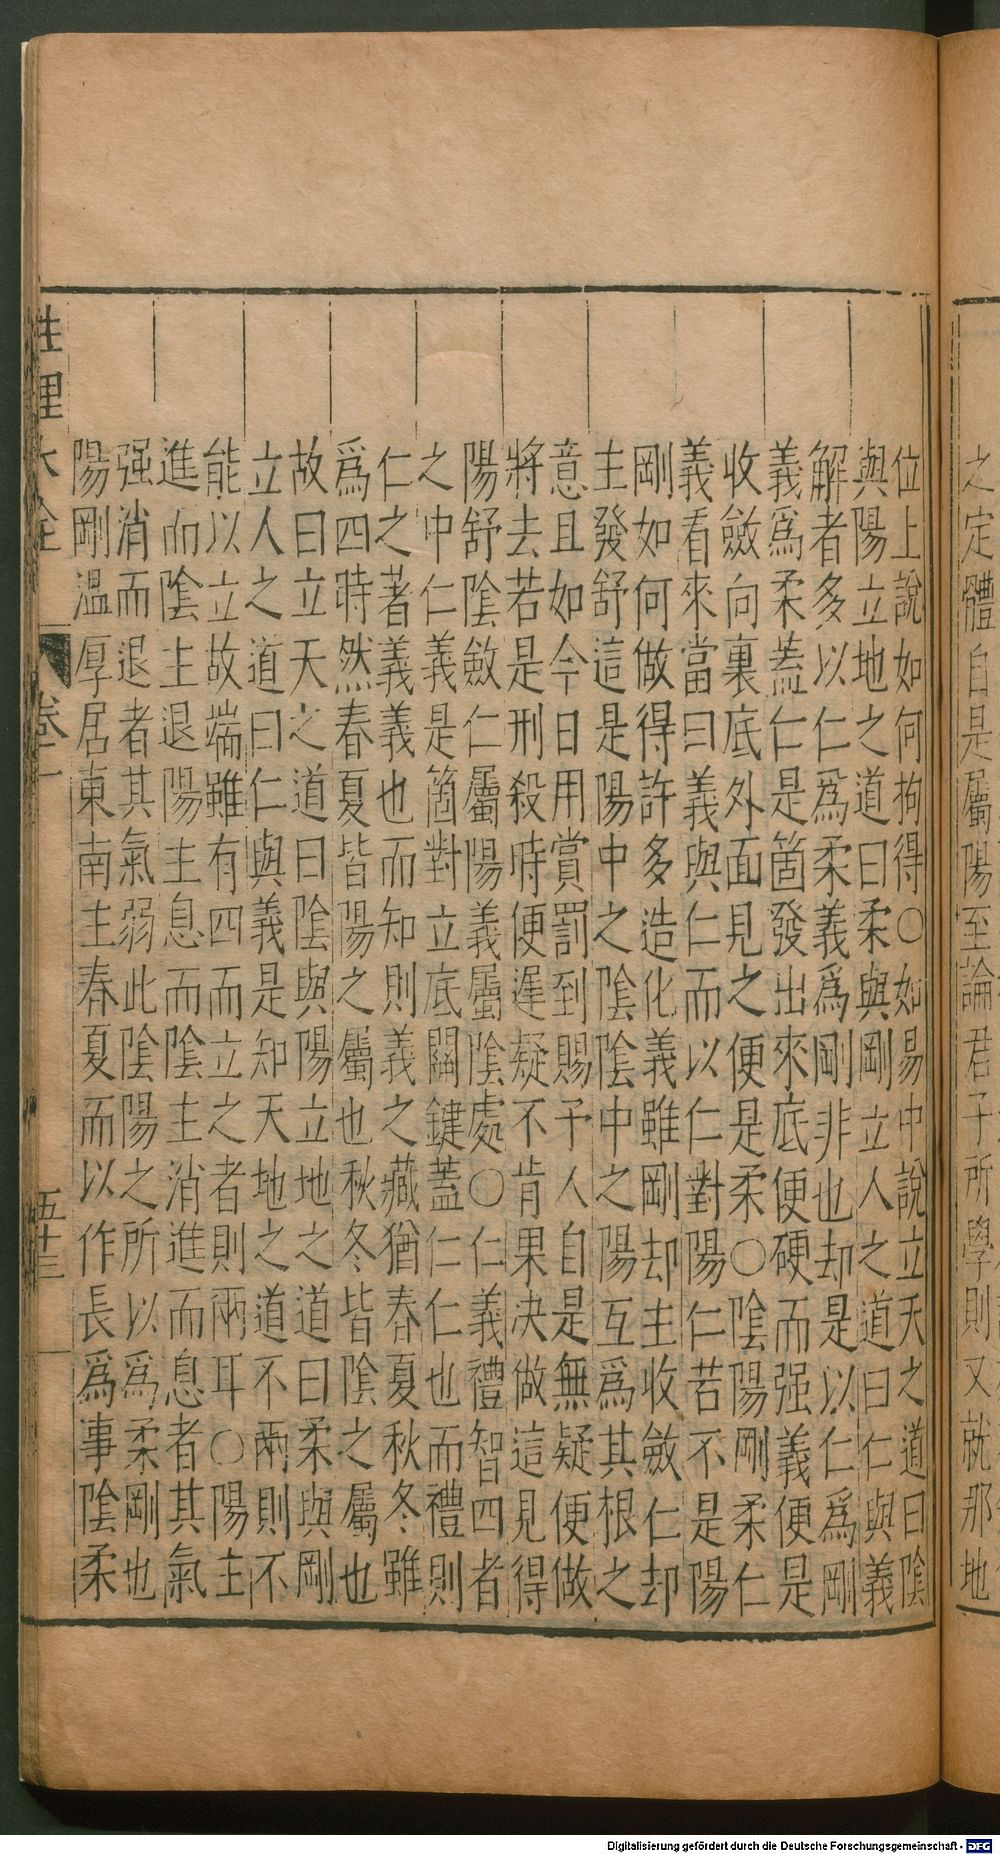 之定體自是屬陽至論君子所學則又就那地
位上說如何拘得〇如易中說立天之道曰陰
與陽立地之道曰柔與剛立人之道曰仁與義
解者多以仁爲柔義爲剛非也却是以仁爲剛
義爲柔蓋仁是箇發出來底便硬而强義便是
收斂向裏底外面見之便是柔〇陰陽剛柔仁
義看來當曰義與仁而以仁對陽仁若不是陽
剛如何做得許多造化義雖剛却主收斂仁却
主發舒這是陽中之陰陰中之陽互爲其根之
意且如今日用賞罰到賜予人自是無疑便做
將去若是刑殺時便遲疑不肯果決做這見得
陽舒陰斂仁屬陽義屬陰處〇仁義禮智四者
之中仁義是箇對立底關鍵蓋仁仁也而禮則
仁之著義義也而知則義之藏猶春夏秋冬雖
爲四時然春夏皆陽之屬也秋冬皆陰之屬也
故曰立天之道曰陰與陽立地之道曰柔與剛
立人之道曰仁與義是知天地之道不兩則不
能以立故端雖有四而立之者則兩耳〇陽主
進而陰主退陽主息而陰主消進而息者其氣
强消而退者其氣弱此陰陽之所以爲柔剛也
陽剛溫厚居東南主春夏而以作長爲事陰柔
性理大全 卷一 五十三
Digitalisierung gefördert durch die Deutsche Forschungsgemeinschaft - DFG